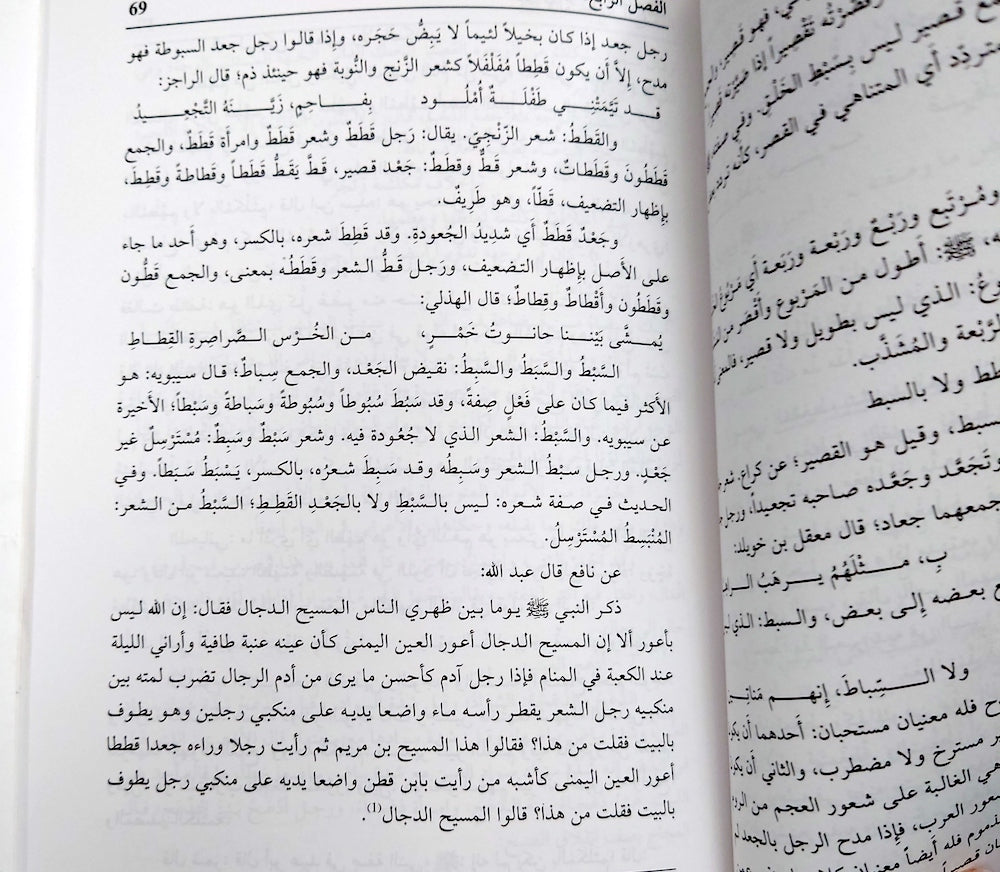 الفصل الرابع
69
رجل جعد إذا كان بخيلاً لئيماً لا يَبِضُّ حَجَره، وإذا قالوا رجل جعد السبوطة فهو
مدح، إلاَّ أَن يكون قَطِطاً مُفَلْفَلاً كشعر الزَّنج والنُّوبة فهو حينئذ ذم؛ قال الراجز:
قـد تَيَّمَتْنِـي طَفْلَـةٌ أُمْلُـود بِفـاحِـمٍ، زَيَّـنَـهُ التَّجْعِـيـدُ
والقَطَطُ: شعر الزَّنْجيّ. يقال: رَجل قَطَطٌ وشعر قَطَطٌ وامرأَة قَطَطٌ، والجمع
قَطَطُونَ وقَطَطاتٌ، وشعر قَطٌّ وقَطَطٌ: جَعْد قصير، قَطَّ يَقَطُّ قَطَطاً وقَطاطةً وقَطِطَ،
بإِظهار التضعيف، قَطّاً، وهو طَرِيفٌ.
وجَعْدٌ قَطَطٌ أَي شدِيدُ الجُعودةِ. وقد قَطِطَ شعره، بالكسر، وهو أَحد ما جاء
على الأَصل بإِظهار التضعيف، ورَجل قَطُّ الشعر وقَطَطُه بمعنى، والجمع قَطُّون
وقَطَطُون وأَقْطاطٌ وقِطاطٌ؛ قال الهذلي:
يُمشَّـى بَيْنَـنـا حانـوتُ خَمْـرٍ، مـن الخُرْسِ الصَّـراصِرةِ القِطاطِ
السَّبْطُ والسَّبَطُ والسَّبِطُ: نقيض الجَعْد، والجمع سِباطٌ؛ قال سيبويه: هو
الأَكثر فيما كان على فَعْلٍ صِفةً، وقد سَبُطَ سُبُوطاً وسُبُوطةً وسَباطةً وسَبْطاً؛ الأَخيرة
عن سيبويه. والسَّبْطُ: الشعر الذي لا جُعُودة فيه. وشعر سَبْطٌ وسَبِطٌ: مُسْتَرْسِلٌ غير
جَعْدٍ. ورجل سبْطُ الشعر وسَبِطُه وقد سَبِطَ شعرُه، بالكسر، يَسْبَطُ سَبَطاً. وفي
الحديث في صفة شعره: ليس بالسَّبْطِ ولا بالجَعْدِ القَطِطِ؛ السَّبْطُ من الشعر:
المُنْبَسِطُ المُسْتَرْسِلُ.
عن نافع قال عبد الله:
ذكر النبي ﷺ يوما بين ظهري الناس المسيح الدجال فقال: إن الله ليس
بأعور ألا إن المسيح الدجال أعور العين اليمنى كأن عينه عنبة طافية وأراني الليلة
عند الكعبة في المنام فإذا رجل آدم كأحسن ما يرى من أدم الرجال تضرب لمته بين
منكبيه رجل الشعر يقطر رأسه ماء واضعا يديه على منكبي رجلين وهو يطوف
بالبيت فقلت من هذا؟ فقالوا هذا المسيح بن مريم ثم رأيت رجلا وراءه جعدا قططا
أعور العين اليمنى كأشبه من رأيت بابن قطن واضعا يديه على منكبي رجل يطوف
بالبيت فقلت من هذا؟ قالوا المسيح الدجال(1).
قصير ليس بِسَبْطِ الخَلْقِ. وفي
متردِّد أي المتناهي في القصر، كأنه
ومُرْتَبِع ورَبْعٌ ورَبْعة ورَبَعة أَي
ﷺ: أَطول من المَرْبوع وأَقْصر من
الذي ليس بطويل ولا قصير،
الرَّبْعة والمُشَذَّب.
ولا بالسبط
سبط، وقيل هو القصير؛ عن كراع.
وتَجَعَّد وجَعَّده صاحبه تجعيداً، ورجل
جمعهما جعاد؛ قال معقل بن خويلد:
مـثْلَهُمُ يـرهَبُ
بعضه إِلى بعض، والسبط: الذي
ولا الـسِّـباطَ، إِنهـم
فله معنيان مستحبان: أَحدهما أَن
مسترخ ولا مضطرب، والثاني أَن
هي الغالبة على شعور العجم من
شعور العرب، فإِذا مدح الرجل بالجعد
فله أَيضاً